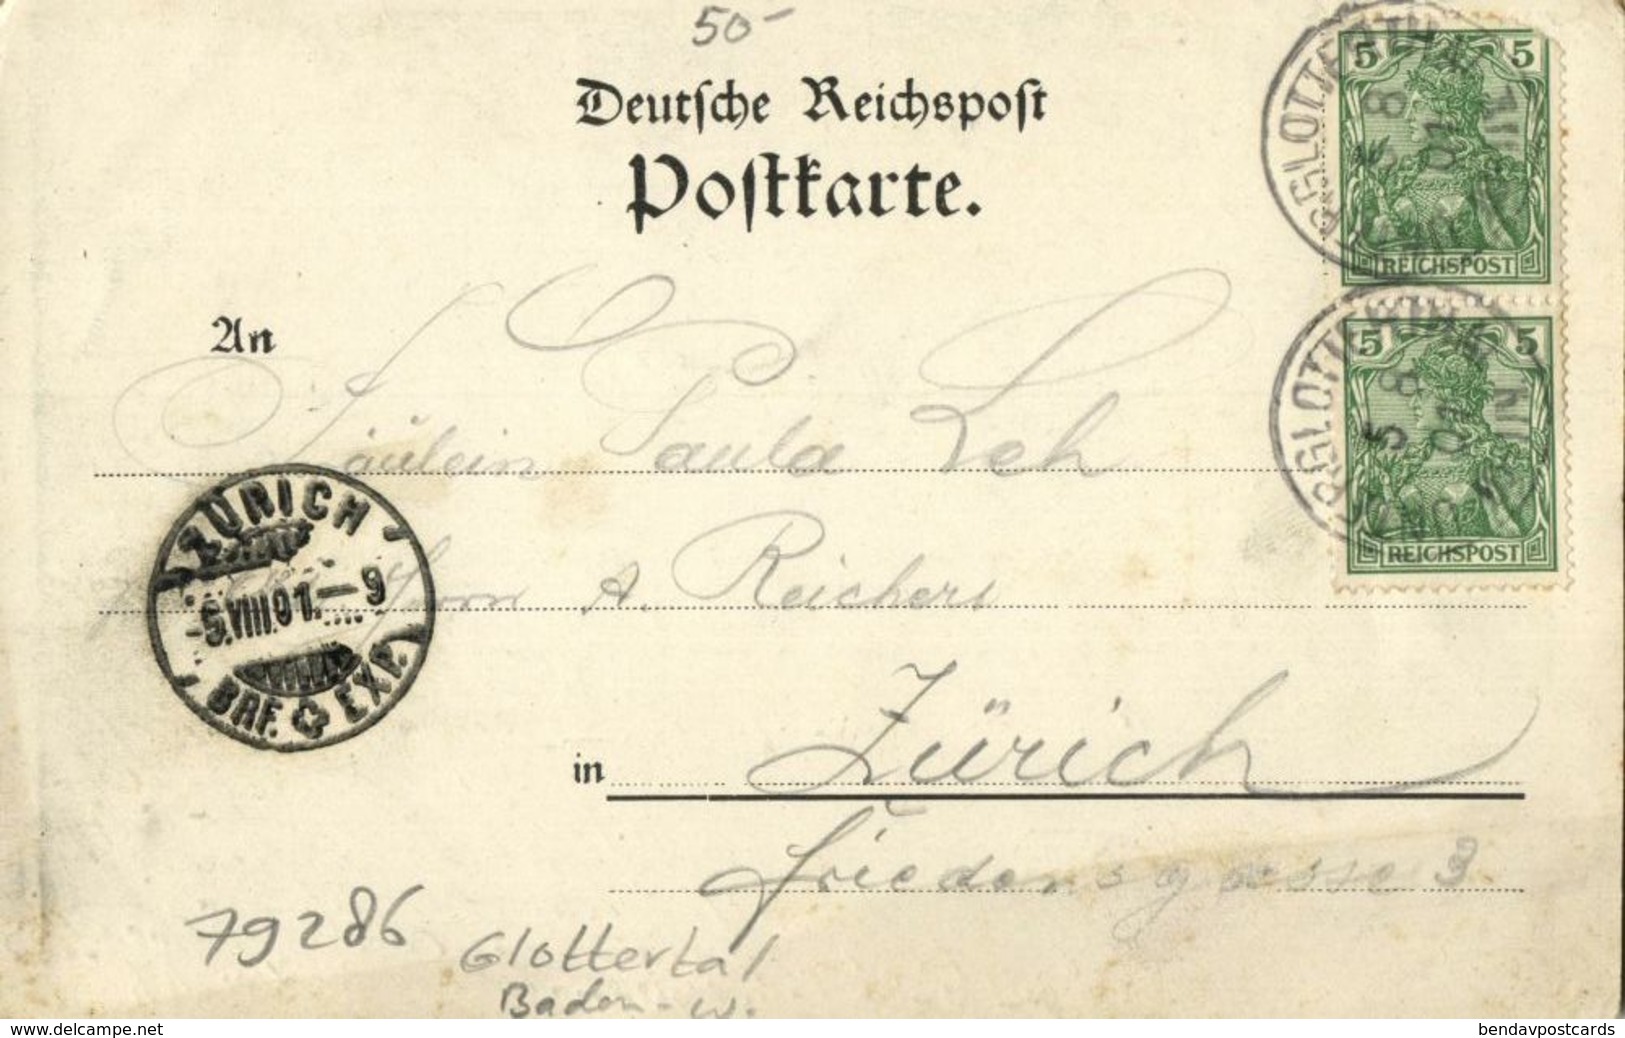 50-
Deutsche Reichspost
Postkarte.
5 5
REICHSPOST
5 5
REICHSPOST
An Fräulein Paula Leh
Herrn A. Reichers
ZÜRICH
-5.VIII.01.-9
BRF. EXP.
in Zürich
Friedensgasse 3
79286 Glottertal
Baden-W.
www.delcampe.net
bendavpostcards